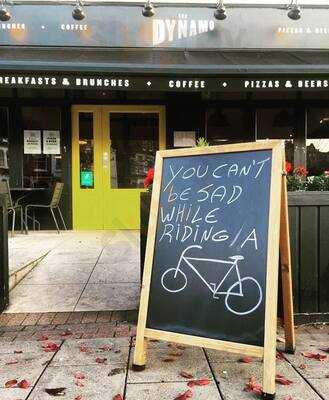 THE
DYNAMO
COFFEE
PIZZAS & BEE
BREAKFASTS & BRUNCHES • COFFEE • PIZZAS & BEERS
YOU CAN'T
BE SAD
WHILE
RIDING/A